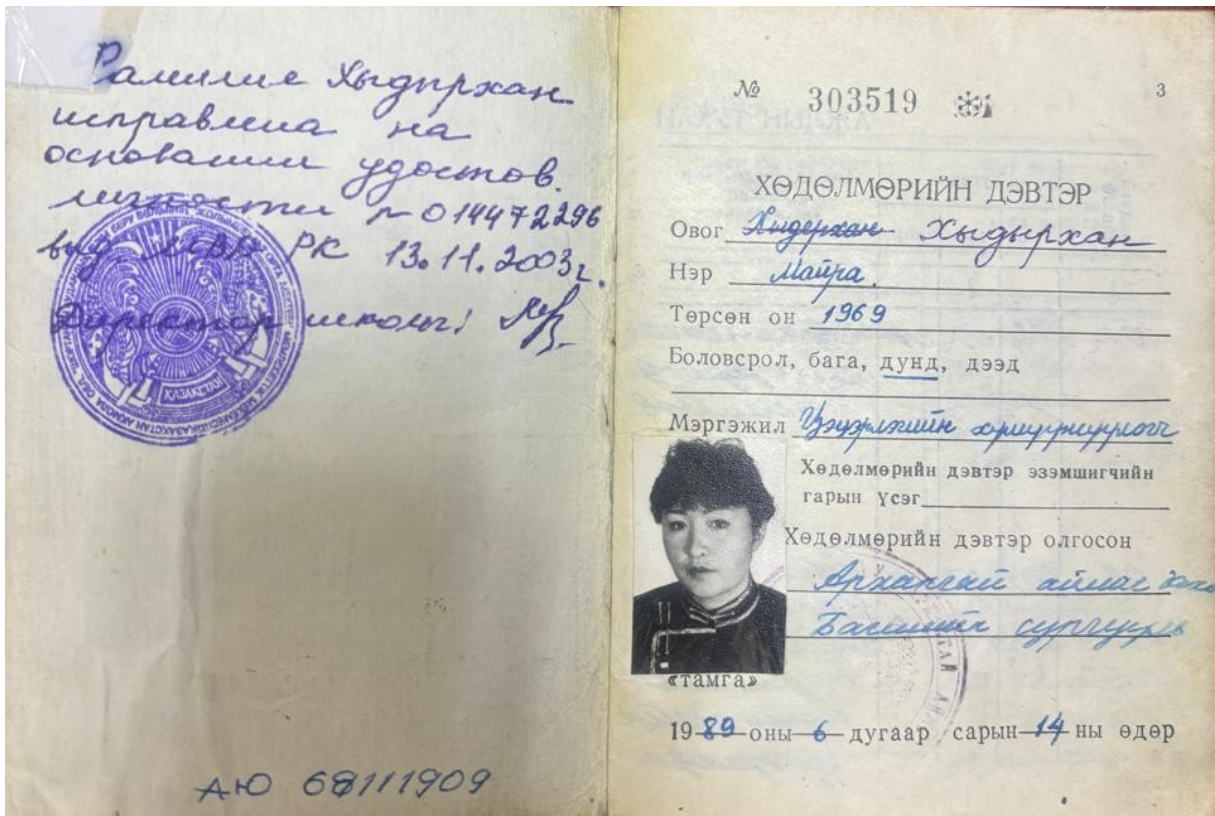 Фамилие Хыдырхан
исправлена на
основании удостов.
личности № 014472296
выд МВД РК 13.11.2003г.
Директор школы:
АЮ 68111909
№ 303519
3
ХӨДӨЛМӨРИЙН ДЭВТЭР
Овог Хыдерхан Хыдырхан
Нэр Майра.
Төрсөн он 1969
Боловсрол, бага, дунд, дээд
Мэргэжил Цэцэрлэгийн хүмүүжүүлэгч
Хөдөлмөрийн дэвтэр эзэмшигчийн
гарын үсэг
Хөдөлмөрийн дэвтэр олгосон
Архангай аймаг
Багшийн сургууль
«тамга»
1989 оны 6 дугаар сарын 14 ны өдөр